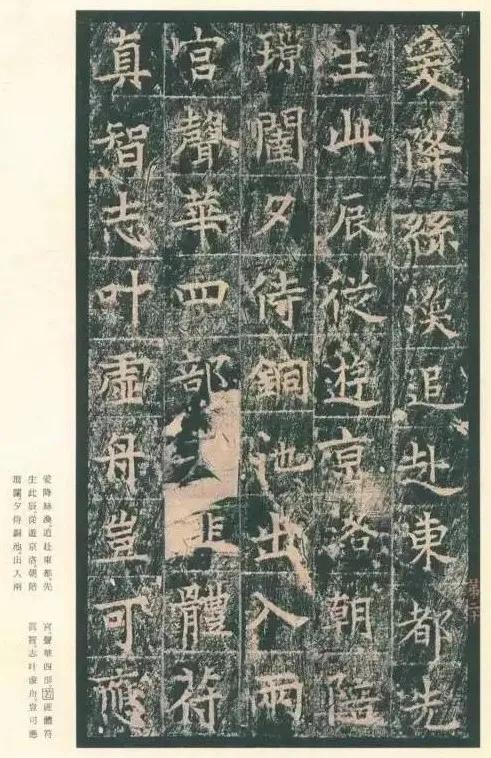 爰降絲渙追赴東都先
生此辰從遊京洛朝陪
瑣闈夕侍銅池出入兩
宮聲華四部匪體符
真智志叶虛舟豈可應
爰降絲渙、追赴東都、先
生此辰、從遊京洛、朝陪
瑣闈、夕侍銅池、出入兩
宮、聲華四部、若匪體符
眞智、志叶虛舟、豈可應